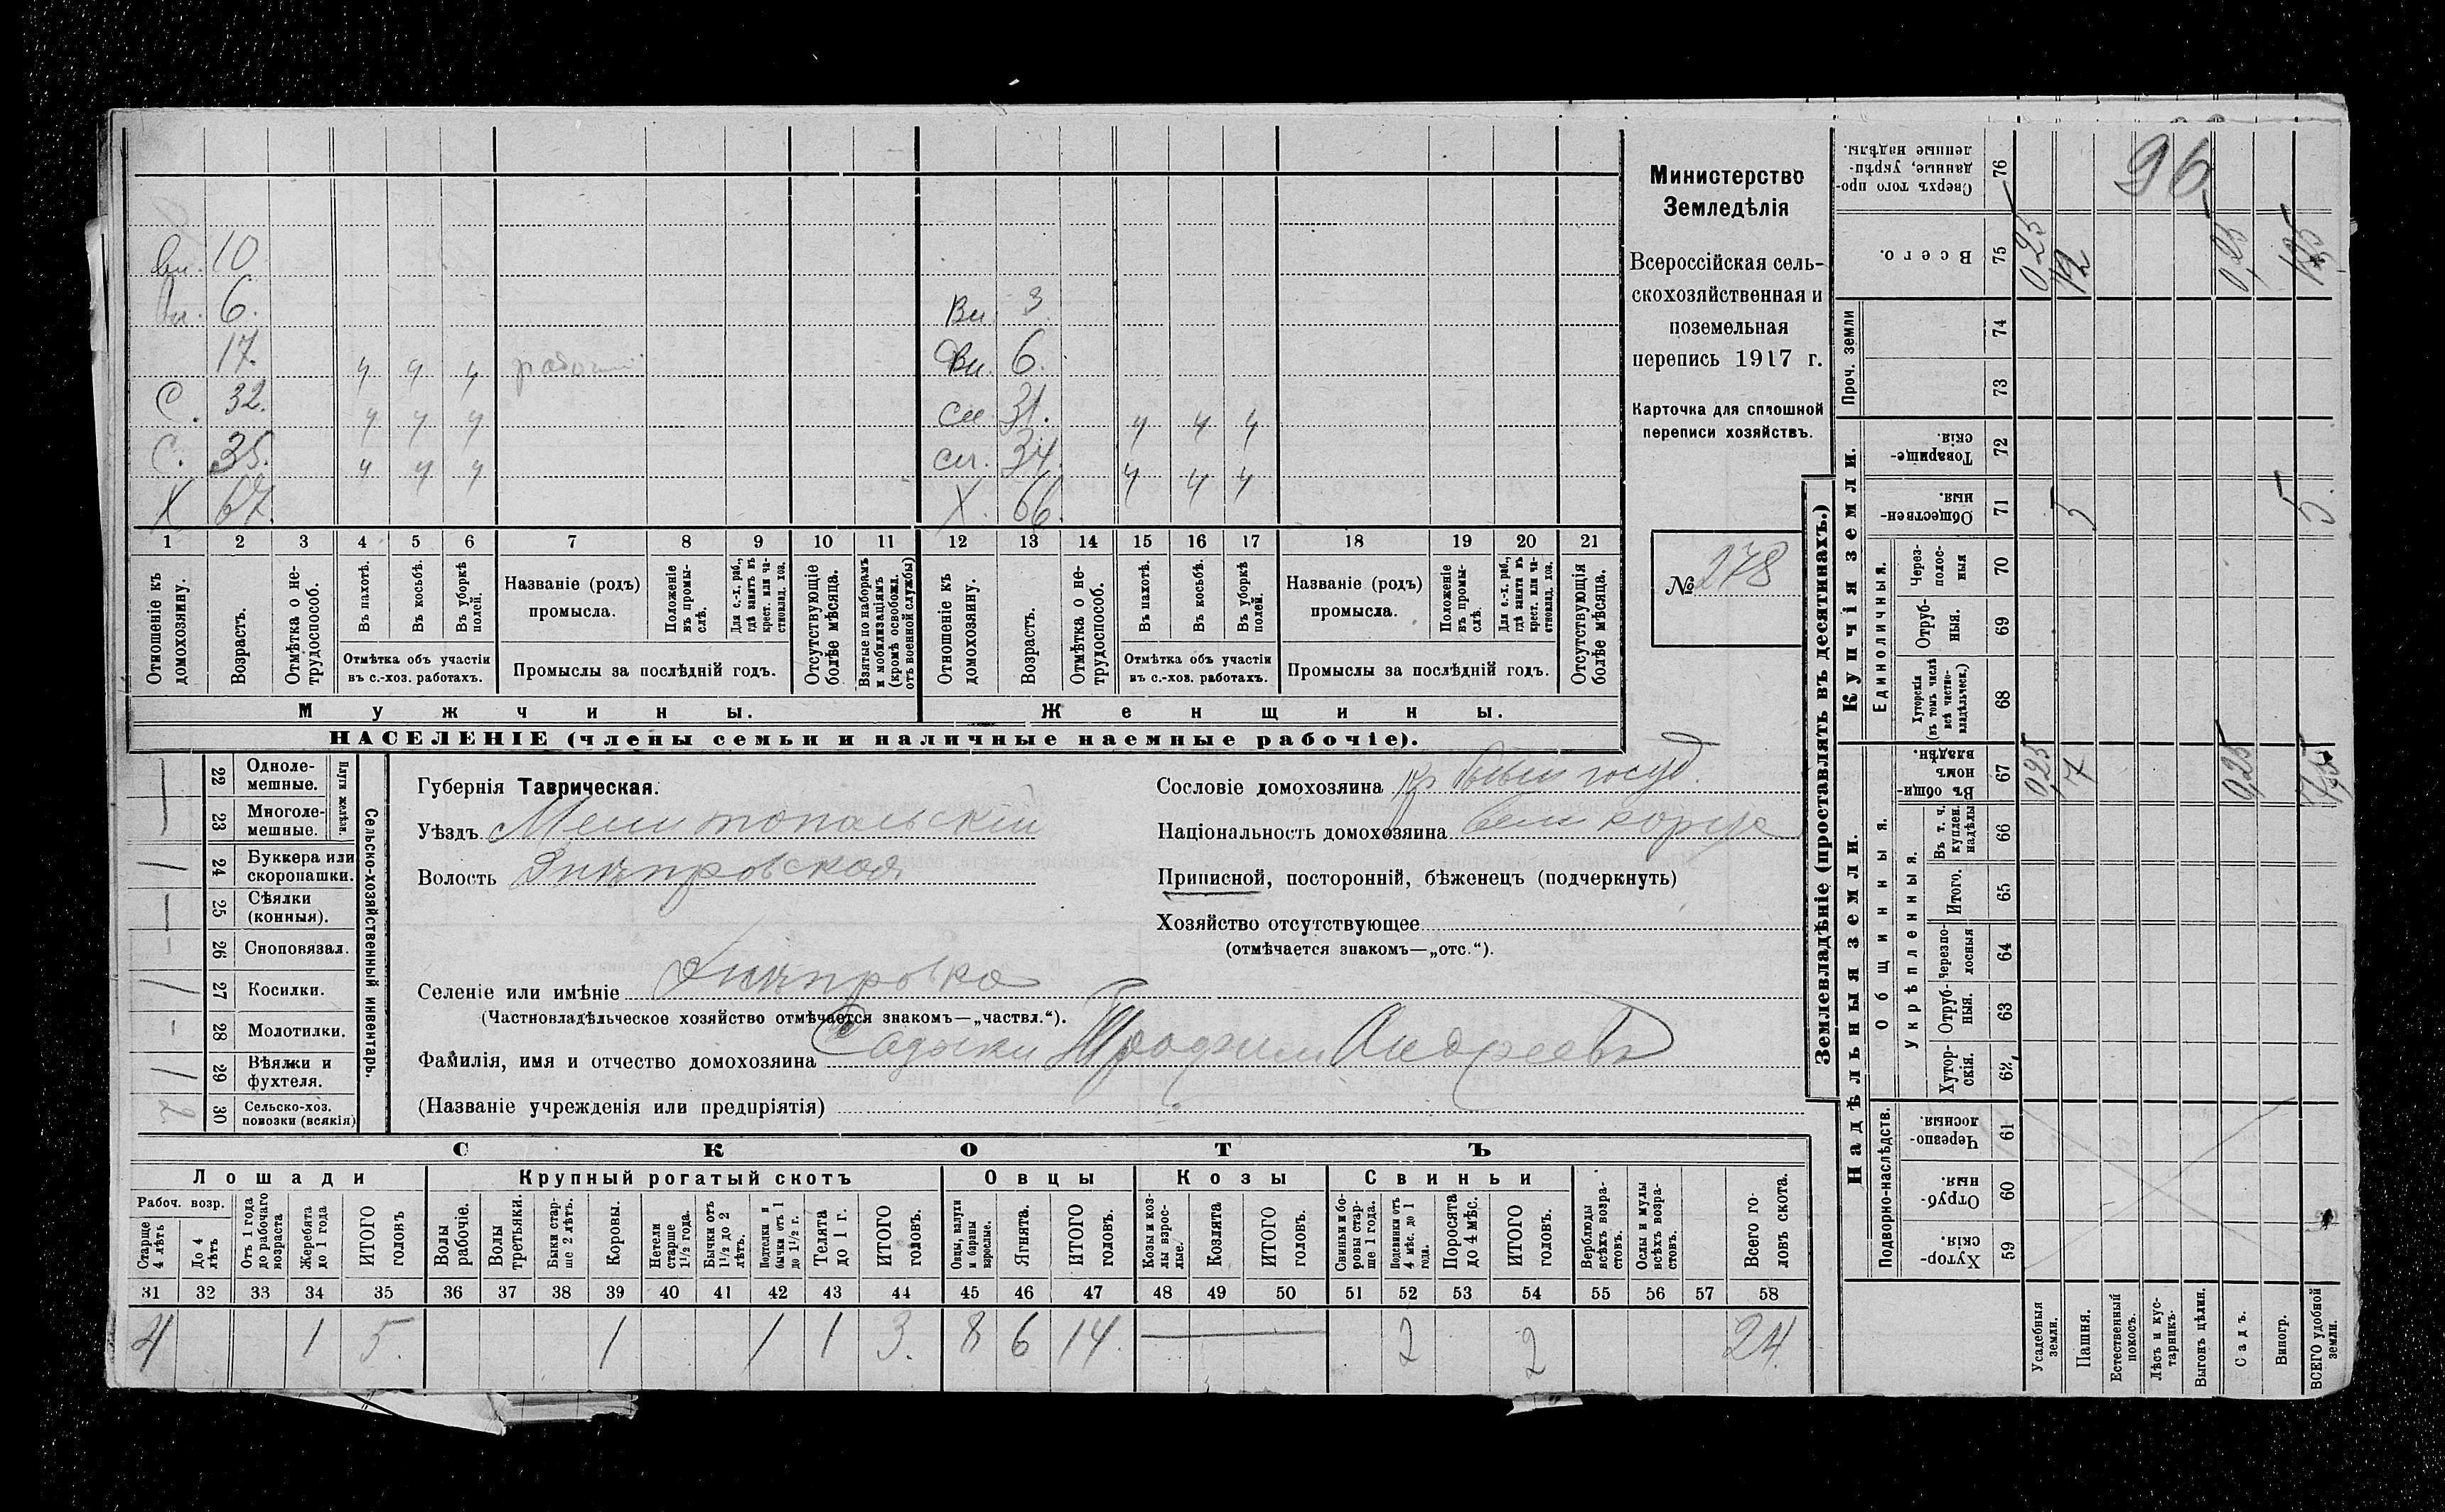 Министерство
Земледѣлія
Всероссійская сель-
скохозяйственная и
поземельная
перепись 1917 г.
Карточка для сплошной
переписи хозяйствъ.
№ 278
96
вн. 10
вн. 6. Вн. 3
17. ч ч ч рабочий Вн. 6.
С. 32. ч ч ч сн 31. ч ч ч
С. 35. ч ч ч сн. 34. ч ч ч
Х 67. Х. 66.
1 2 3 4 5 6 7 8 9 10 11 12 13 14 15 16 17 18 19 20 21
Отношеніе къ домохозяину.
Возрастъ.
Отмѣтка о не-трудоспособ.
Въ пахотѣ.
Въ косьбѣ.
Въ уборкѣ полей.
Отмѣтка объ участіи
въ с.-хоз. работахъ.
Названіе (родъ)
промысла.
Положеніе въ промы-слѣ.
Для с.-х. раб., гдѣ занятъ въ крест. или ча-стновлад. хоз.
Промыслы за послѣдній годъ.
Отсутствующіе болѣе мѣсяца.
Взятые по наборамъ и мобилизаціямъ (кромѣ освобожд. отъ военной службы)
Отношеніе къ домохозяину.
Возрастъ.
Отмѣтка о не-трудоспособ.
Въ пахотѣ.
Въ косьбѣ.
Въ уборкѣ полей.
Отмѣтка объ участіи
въ с.-хоз. работахъ.
Названіе (родъ)
промысла.
Положеніе въ промы-слѣ.
Для с.-х. раб., гдѣ занята въ крест. или ча-стновлад. хоз.
Промыслы за послѣдній годъ.
Отсутствующія болѣе мѣсяца.
Мужчины. Женщины.
НАСЕЛЕНІЕ (члены семьи и наличные наемные рабочіе).
Сельско-хозяйственный инвентарь.
Плуги желѣзн.
22 Однолемешные.
23 Многолемешные.
24 Буккера или скоропашки.
25 Сѣялки (конныя).
26 Сноповязал.
27 Косилки.
28 Молотилки.
29 Вѣялки и фухтеля.
2 30 Сельско-хоз. повозки (всякія)
Губернія Таврическая.
Уѣздъ Мелитопольскій
Волость Днѣпровская
Селеніе или имѣніе Днѣпровка
(Частновладѣльческое хозяйство отмѣчается знакомъ—„частвл.“).
Фамилія, имя и отчество домохозяина Садоки Трофим Андреевъ
(Названіе учрежденія или предпріятія)
Сословіе домохозяина кр бывш госуд.
Національность домохозяина великорусъ
Приписной, посторонній, бѣженецъ (подчеркнуть)
Хозяйство отсутствующее
(отмѣчается знакомъ—„отс.“).
СКОТЪ
Лошади Крупный рогатый скотъ Овцы Козы Свиньи
Рабоч. возр.
Старше 4 лѣтъ
До 4 лѣтъ
Отъ 1 года до рабочаго возраста
Жеребята до 1 года
ИТОГО головъ
Волы рабочіе.
Волы третьяки.
Быки стар-ше 2 лѣтъ.
Коровы.
Нетели старше 1½ года.
Бычки отъ 1½ до 2 лѣтъ.
Подтелки и бычки отъ 1 до 1½ г.
Телята до 1 г.
ИТОГО головъ.
Овцы, валухи и бараны взрослые.
Ягнята.
ИТОГО головъ.
Козы и коз-лы взрос-лые.
Козлята
ИТОГО головъ.
Свиньи и бо-ровы стар-ше 1 года.
Подсвинки отъ 4 мѣс. до 1 года.
Поросята до 4 мѣс.
ИТОГО головъ.
Верблюды всѣхъ возра-стовъ.
Ослы и мулы всѣхъ возра-стовъ.
Всего го-ловъ скота.
31 32 33 34 35 36 37 38 39 40 41 42 43 44 45 46 47 48 49 50 51 52 53 54 55 56 57 58
4 1 5. 1 1 1 3. 8 6 14. 2 2 24.
Землевладѣніе (проставлять въ десятинахъ.)
Надѣльныя земли. Купчія земли. Проч. земли
Подворно-наслѣдств. Общинныя. Укрѣпленныя. Единоличныя.
59 Хутор-скія.
60 Отруб-ныя.
61 Черезпо-лосныя
62 Хутор-скія.
63 Отруб-ныя.
64 Черезпо-лосныя
65 Итого.
66 Въ т. ч. куплен. надѣлы
67 Въ общи-номъ владѣн. 0,25 7 0,25
68 Хуторскія (въ томъ числѣ всѣ частно-владѣльческ.)
69 Отруб-ныя.
70 Через-полос-ныя
71 Обществен-ныя. 5 5.
72 Товарище-скія.
73
74
75 Всего. 0,25 12 0,25
76 Сверхъ того про-данные, укрѣп-ленные надѣлы.
Усадебныя земли.
Пашня.
Естественный покосъ.
Лѣсъ и кус-тарникъ.
Выгонъ цѣлин.
Садъ.
Виногр.
ВСЕГО удобной земли.